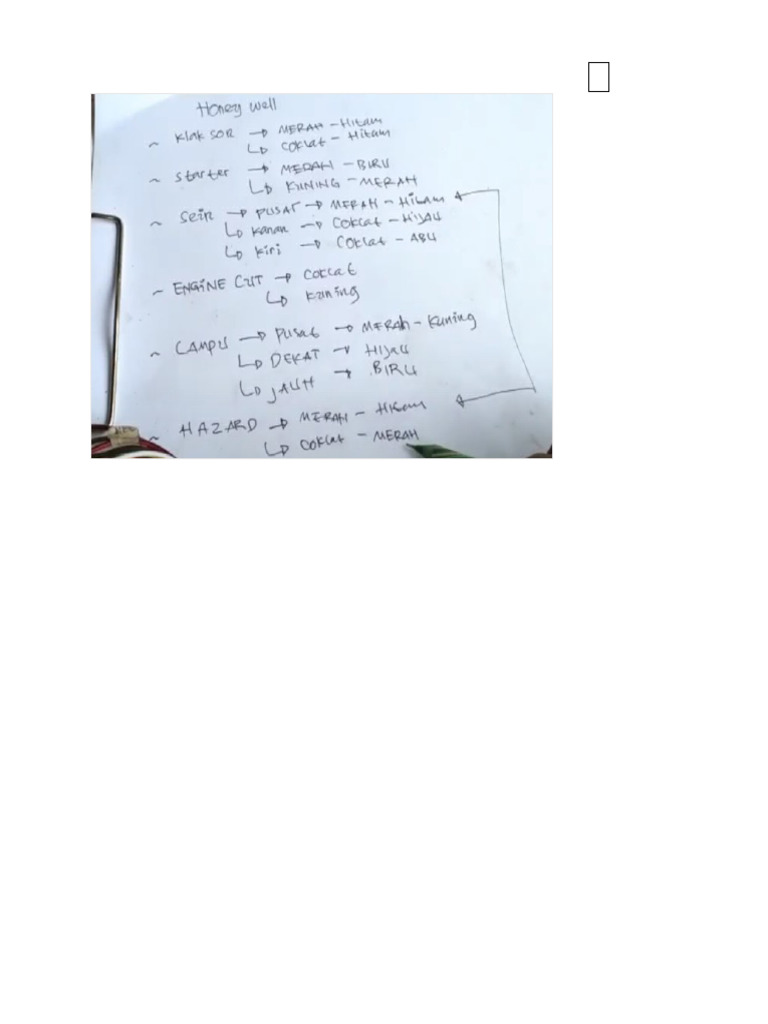 Honey well
~ Klakson → MERAH - Hitam
↳ Coklat - Hitam
~ Starter → MERAH - BIRU
↳ KUNING - MERAH
~ Sein → PUSAT → MERAH - Hitam
↳ Kanan → Coklat - Hijau
↳ Kiri → Coklat - ABU
~ ENGiNE CUT → Coklat
↳ Kuning
~ LAMPU → Pusat → MERAh - Kuning
↳ DEKAT → Hijau
↳ JAUH → BIRU
~ HAZARD → MERAH - Hitam
↳ Coklat - MERAH